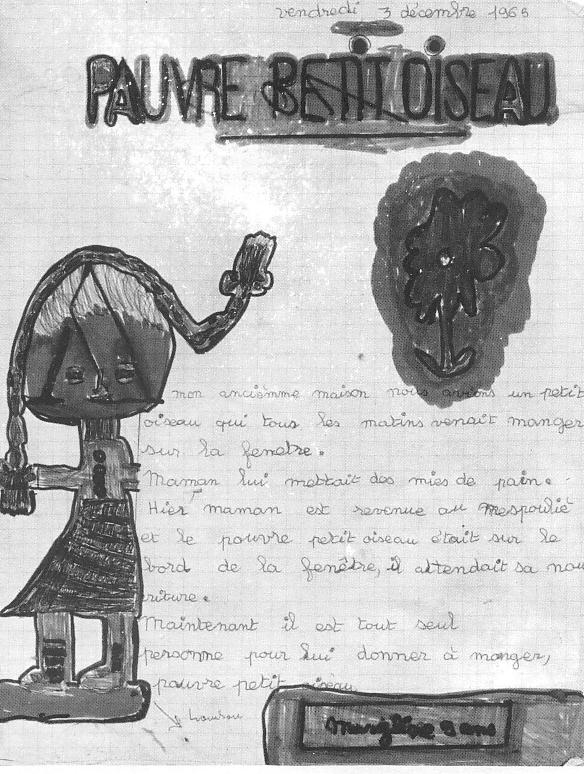 vendredi 3 décembre 1965
PAUVRE PETIT OISEAU
mon ancienne maison nous avions un petit
oiseau qui tous les matins venait manger
sur la fenetre.
Maman lui mettait des mies de pain.
Hier maman est revenue au Mespoulié
et le pouvre petit oiseau était sur le
bord de la fenêtre, il attendait sa nou
riture.
Maintenant il est tout seul
personne pour lui donner à manger,
pauvre petit oiseau.
9 ans